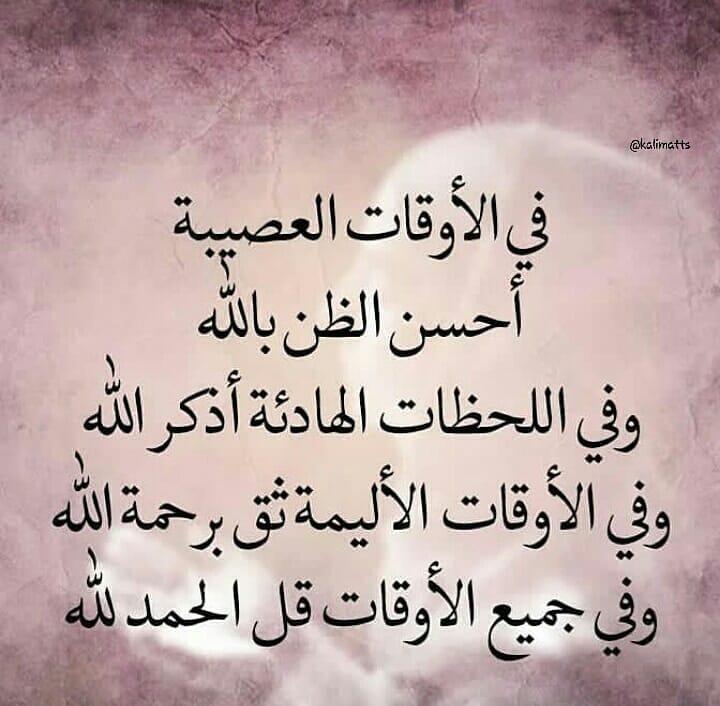 @kalimatts
في الأوقات العصيبة
أحسن الظن بالله
وفي اللحظات الهادئة أذكر الله
وفي الأوقات الأليمة ثق برحمة الله
وفي جميع الأوقات قل الحمد لله